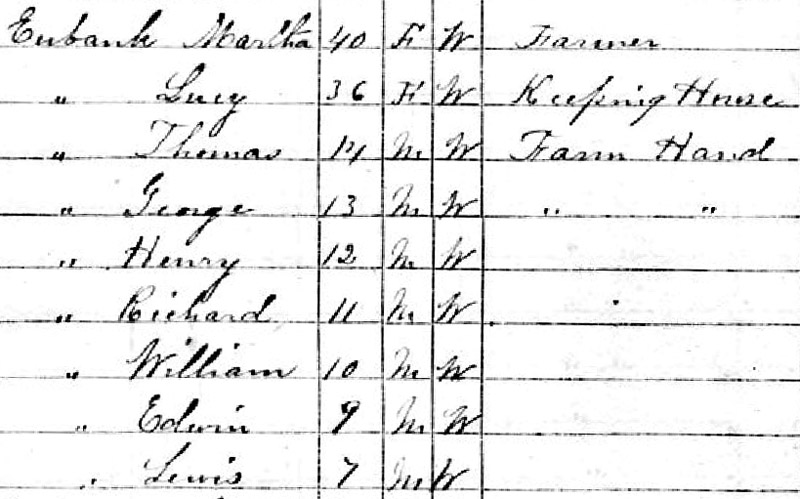 Eubank Martha 40 F W Farmer
" Lucy 36 F W Keeping House
" Thomas 14 M W Farm Hand
" George 13 M W " "
" Henry 12 M W
" Richard 11 M W
" William 10 M W
" Edwin 9 M W
" Lewis 7 M W